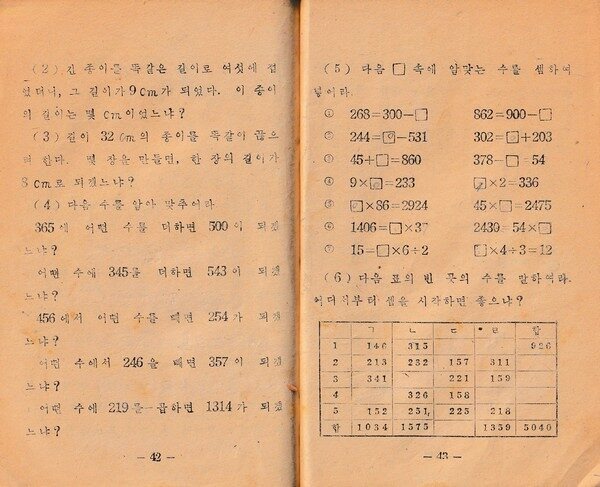 (2) 긴 종이를 똑같은 길이로 여섯에 접
었더니, 그 길이가 9cm가 되였다. 이 종이
의 길이는 몇 cm이었느냐?
(3) 길이 32cm의 종이를 똑같이 끊으
려 한다. 몇 장을 만들면, 한 장의 길이가
8cm로 되겠느냐?
(4) 다음 수를 알아 맞추어라
365에 어떤 수를 더하면 500이 되겠
느냐?
어떤 수에 345를 더하면 543이 되겠
느냐?
456에서 어떤 수를 떼면 254가 되겠
느냐?
어떤 수에서 246을 떼면 357이 되겠
느냐?
어떤 수에 219를 곱하면 1314가 되겠
느냐?
— 42 —
(5) 다음 □ 속에 알맞는 수를 셈하여
넣어라.
① 268=300−□ 862=900−□
② 244=□−531 302=□+203
③ 45+□=860 378−□=54
④ 9×□=233 □×2=336
⑤ □×86=2924 45×□=2475
⑥ 1406=□×37 2430=54×□
⑦ 15=□×6÷2 □×4÷3=12
(6) 다음 표의 빈 곳의 수를 말하여라.
어디서부터 셈을 시작하면 좋으냐?
ㄱ ㄴ ㄷ ㄹ 합
1 146 315 926
2 213 232 157 311
3 341 221 159
4 326 158
5 152 251 225 218
합 1034 1575 1359 5040
— 43 —